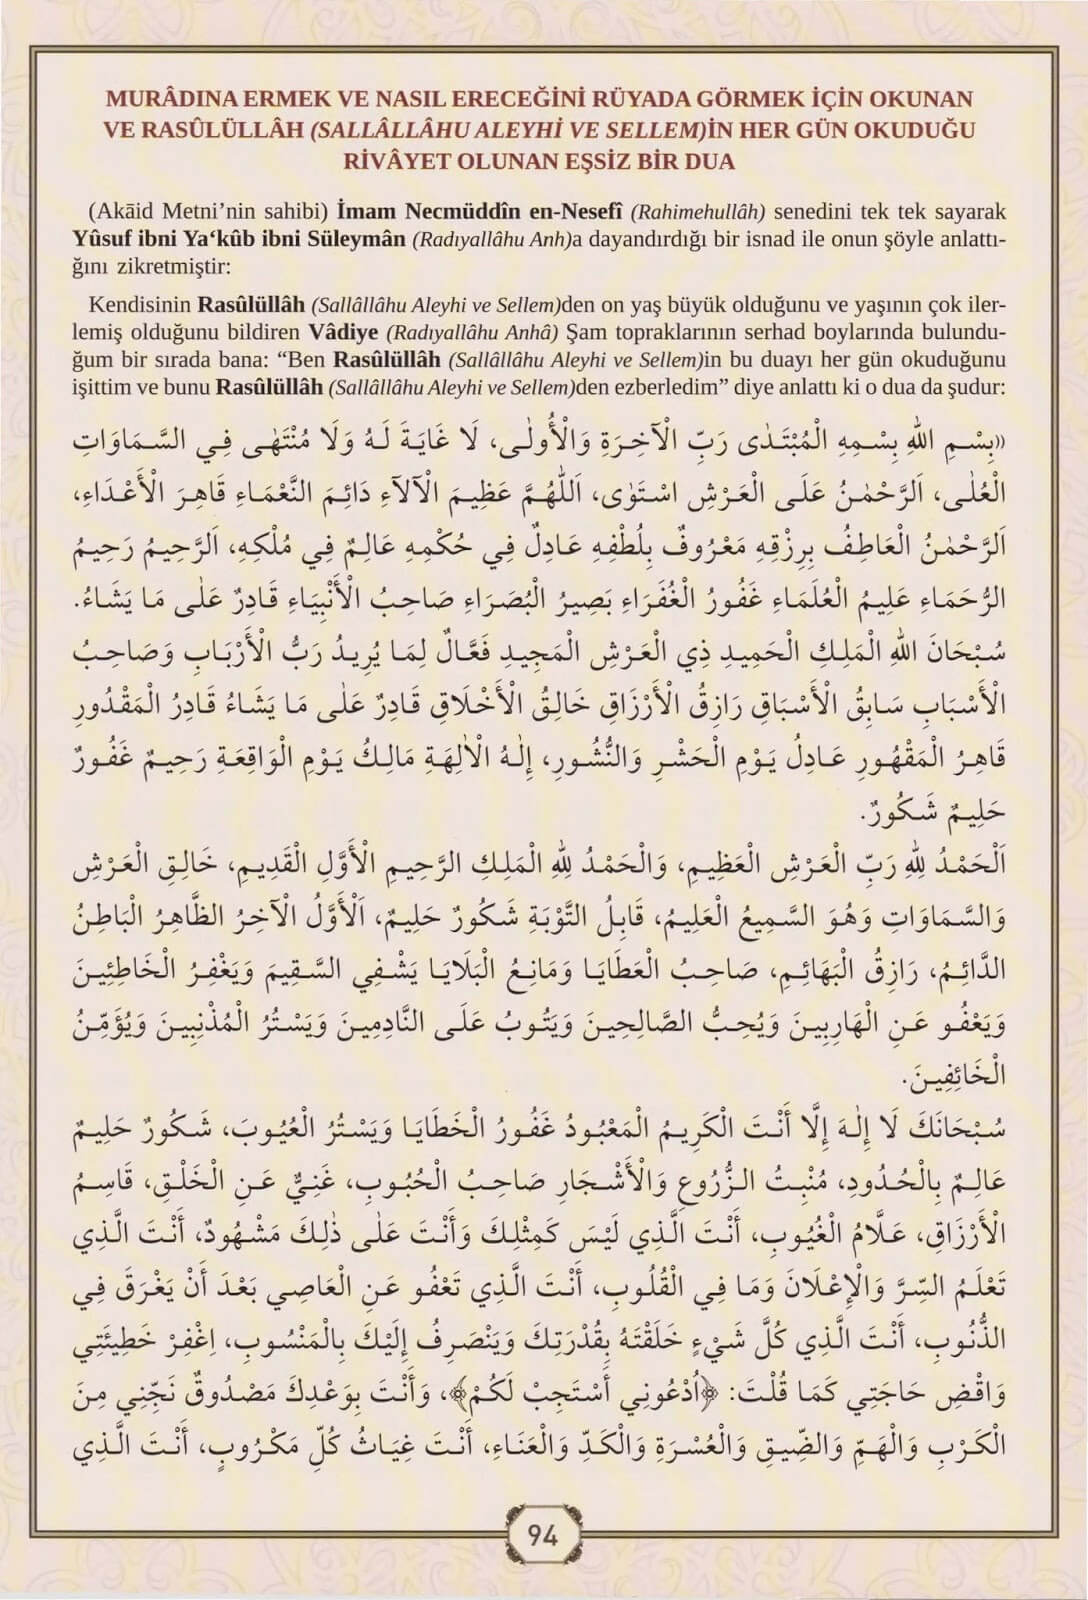 MURÂDINA ERMEK VE NASIL ERECEĞİNİ RÜYADA GÖRMEK İÇİN OKUNAN
VE RASÛLÜLLÂH (SALLÂLLÂHU ALEYHİ VE SELLEM)İN HER GÜN OKUDUĞU
RİVÂYET OLUNAN EŞSİZ BİR DUA
(Akāid Metni’nin sahibi) İmam Necmüddîn en-Nesefî (Rahimehullâh) senedini tek tek sayarak
Yûsuf ibni Ya‘kûb ibni Süleymân (Radıyallâhu Anh)a dayandırdığı bir isnad ile onun şöyle anlattı-
ğını zikretmiştir:
Kendisinin Rasûlüllâh (Sallâllâhu Aleyhi ve Sellem)den on yaş büyük olduğunu ve yaşının çok iler-
lemiş olduğunu bildiren Vâdiye (Radıyallâhu Anhâ) Şam topraklarının serhad boylarında bulundu-
ğum bir sırada bana: “Ben Rasûlüllâh (Sallâllâhu Aleyhi ve Sellem)in bu duayı her gün okuduğunu
işittim ve bunu Rasûlüllâh (Sallâllâhu Aleyhi ve Sellem)den ezberledim” diye anlattı ki o dua da şudur:
«بِسْمِ اللهِ بِسْمِهِ الْمُبْتَدٰى رَبِّ الْآخِرَةِ وَالْأُولٰى، لَا غَايَةَ لَهُ وَلَا مُنْتَهٰى فِي السَّمَاوَاتِ
الْعُلٰى، اَلرَّحْمٰنُ عَلَى الْعَرْشِ اسْتَوٰى، اَللّٰهُمَّ عَظِيمَ الْآلَاءِ دَائِمَ النَّعْمَاءِ قَاهِرَ الْأَعْدَاءِ،
اَلرَّحْمٰنُ الْعَاطِفُ بِرِزْقِهِ مَعْرُوفٌ بِلُطْفِهِ عَادِلٌ فِي حُكْمِهِ عَالِمٌ فِي مُلْكِهِ، اَلرَّحِيمُ رَحِيمُ
الرُّحَمَاءِ عَلِيمُ الْعُلَمَاءِ غَفُورُ الْغُفَرَاءِ بَصِيرُ الْبُصَرَاءِ صَاحِبُ الْأَنْبِيَاءِ قَادِرٌ عَلٰى مَا يَشَاءُ.
سُبْحَانَ اللهِ الْمَلِكِ الْحَمِيدِ ذِي الْعَرْشِ الْمَجِيدِ فَعَّالٌ لِمَا يُرِيدُ رَبُّ الْأَرْبَابِ وَصَاحِبُ
الْأَسْبَابِ سَابِقُ الْأَسْبَاقِ رَازِقُ الْأَرْزَاقِ خَالِقُ الْأَخْلَاقِ قَادِرٌ عَلٰى مَا يَشَاءُ قَادِرُ الْمَقْدُورِ
قَاهِرُ الْمَقْهُورِ عَادِلُ يَوْمِ الْحَشْرِ وَالنُّشُورِ، إِلٰهُ الْاٰلِهَةِ مَالِكُ يَوْمِ الْوَاقِعَةِ رَحِيمٌ غَفُورٌ
حَلِيمٌ شَكُورٌ.
اَلْحَمْدُ لِلهِ رَبِّ الْعَرْشِ الْعَظِيمِ، وَالْحَمْدُ لِلهِ الْمَلِكِ الرَّحِيمِ الْأَوَّلِ الْقَدِيمِ، خَالِقِ الْعَرْشِ
وَالسَّمَاوَاتِ وَهُوَ السَّمِيعُ الْعَلِيمُ، قَابِلُ التَّوْبَةِ شَكُورٌ حَلِيمٌ، اَلْأَوَّلُ الْآخِرُ الظَّاهِرُ الْبَاطِنُ
الدَّائِمُ، رَازِقُ الْبَهَائِمِ، صَاحِبُ الْعَطَايَا وَمَانِعُ الْبَلَايَا يَشْفِي السَّقِيمَ وَيَغْفِرُ الْخَاطِئِينَ
وَيَعْفُو عَنِ الْهَارِبِينَ وَيُحِبُّ الصَّالِحِينَ وَيَتُوبُ عَلَى النَّادِمِينَ وَيَسْتُرُ الْمُذْنِبِينَ وَيُؤَمِّنُ
الْخَائِفِينَ.
سُبْحَانَكَ لَا إِلٰهَ إِلَّا أَنْتَ الْكَرِيمُ الْمَعْبُودُ غَفُورُ الْخَطَايَا وَيَسْتُرُ الْعُيُوبَ، شَكُورٌ حَلِيمٌ
عَالِمٌ بِالْحُدُودِ، مُنْبِتُ الزُّرُوعِ وَالْأَشْجَارِ صَاحِبُ الْحُبُوبِ، غَنِيٌّ عَنِ الْخَلْقِ، قَاسِمُ
الْأَرْزَاقِ، عَلَّامُ الْغُيُوبِ، أَنْتَ الَّذِي لَيْسَ كَمِثْلِكَ وَأَنْتَ عَلٰى ذٰلِكَ مَشْهُودٌ، أَنْتَ الَّذِي
تَعْلَمُ السِّرَّ وَالْإِعْلَانَ وَمَا فِي الْقُلُوبِ، أَنْتَ الَّذِي تَعْفُو عَنِ الْعَاصِي بَعْدَ أَنْ يَغْرَقَ فِي
الذُّنُوبِ، أَنْتَ الَّذِي كُلَّ شَيْءٍ خَلَقْتَهُ بِقُدْرَتِكَ وَيَنْصَرِفُ إِلَيْكَ بِالْمَنْسُوبِ، اِغْفِرْ خَطِيئَتِي
وَاقْضِ حَاجَتِي كَمَا قُلْتَ: ﴿اُدْعُونِي أَسْتَجِبْ لَكُمْ﴾، وَأَنْتَ بِوَعْدِكَ مَصْدُوقٌ نَجِّنِي مِنَ
الْكَرْبِ وَالْهَمِّ وَالضِّيقِ وَالْعُسْرَةِ وَالْكَدِّ وَالْعَنَاءِ، أَنْتَ غِيَاثُ كُلِّ مَكْرُوبٍ، أَنْتَ الَّذِي
94